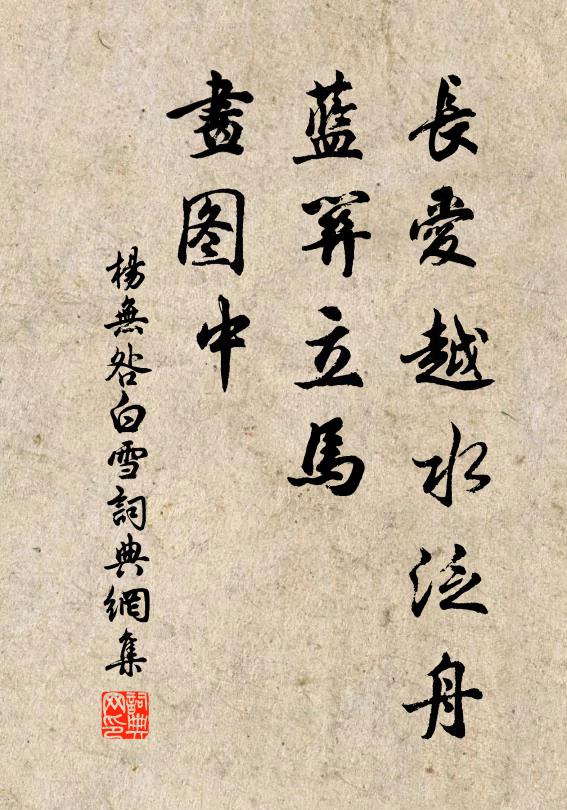 長愛越水泛舟
藍關立馬
畫图中
楊無咎白雪詞典網集
詞典网印